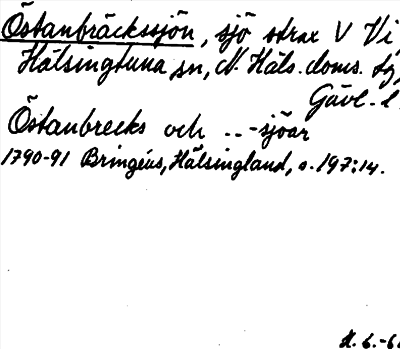 Östanbräckssjön, sjö strax V Vi,
Hälsingtuna sn, N. Häls. doms. tg,
Gävl. l
Östanbrecks och ..-sjöar
1790-91 Bringéus, Hälsingland, s. 197:14.
H. 6.-6